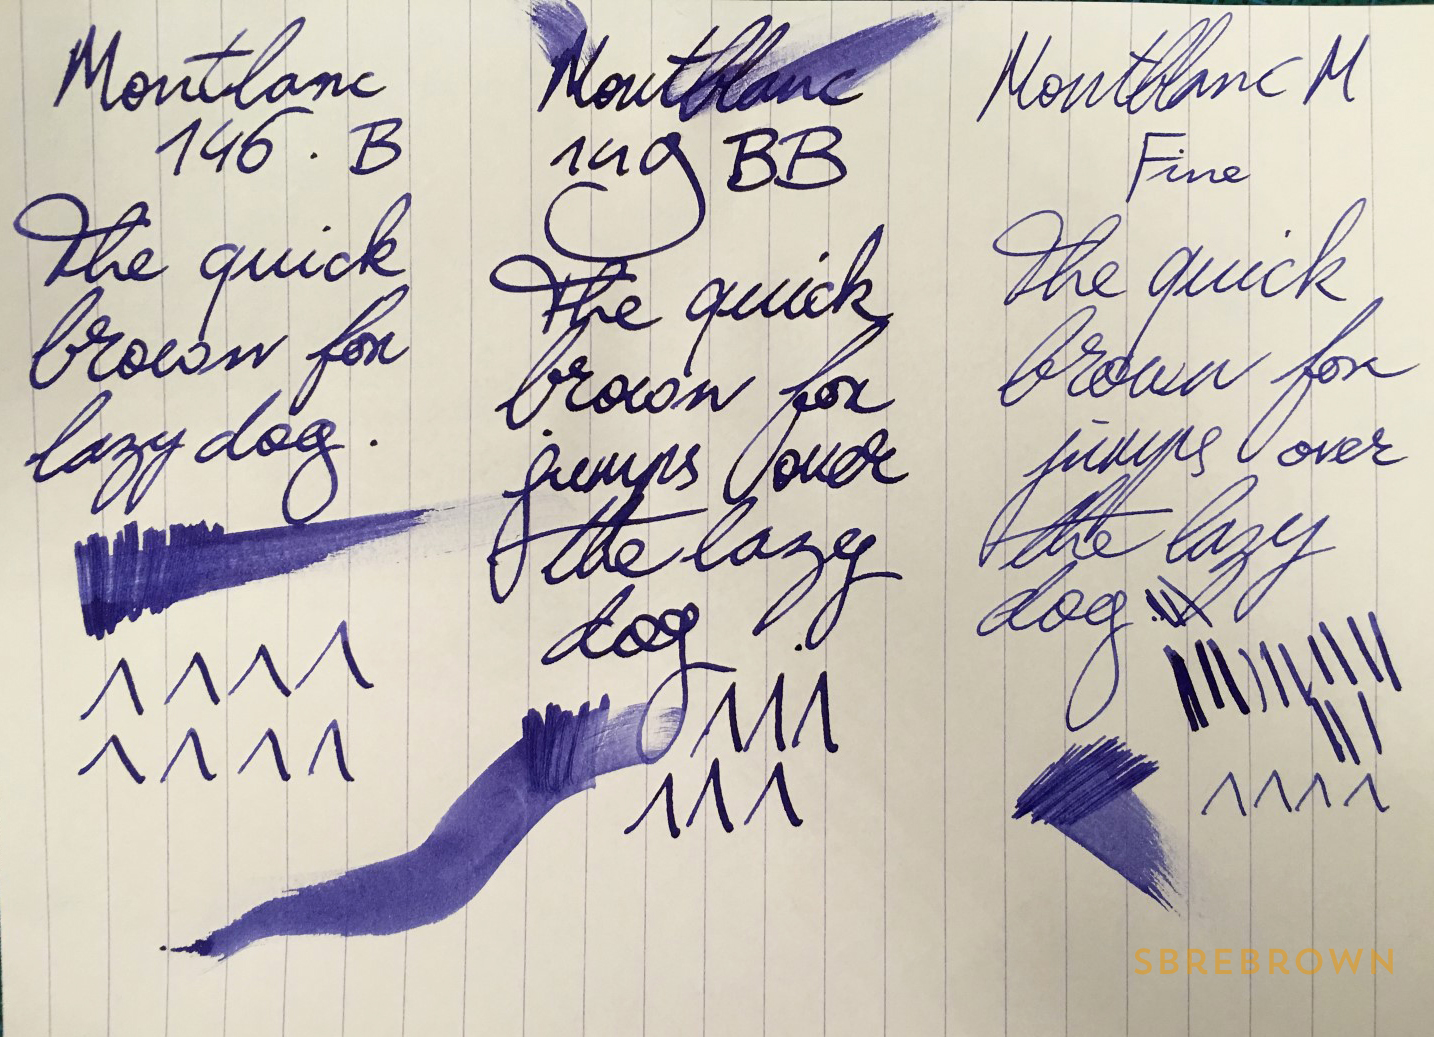 Montlanc
146 . B
The quick
brown fox
lazy dog .
Montblanc
149 BB
The quick
brown fox
jumps over
the lazy
dog
Montblanc M
Fine
The quick
brown fox
jumps over
the lazy
dog
SBREBROWN